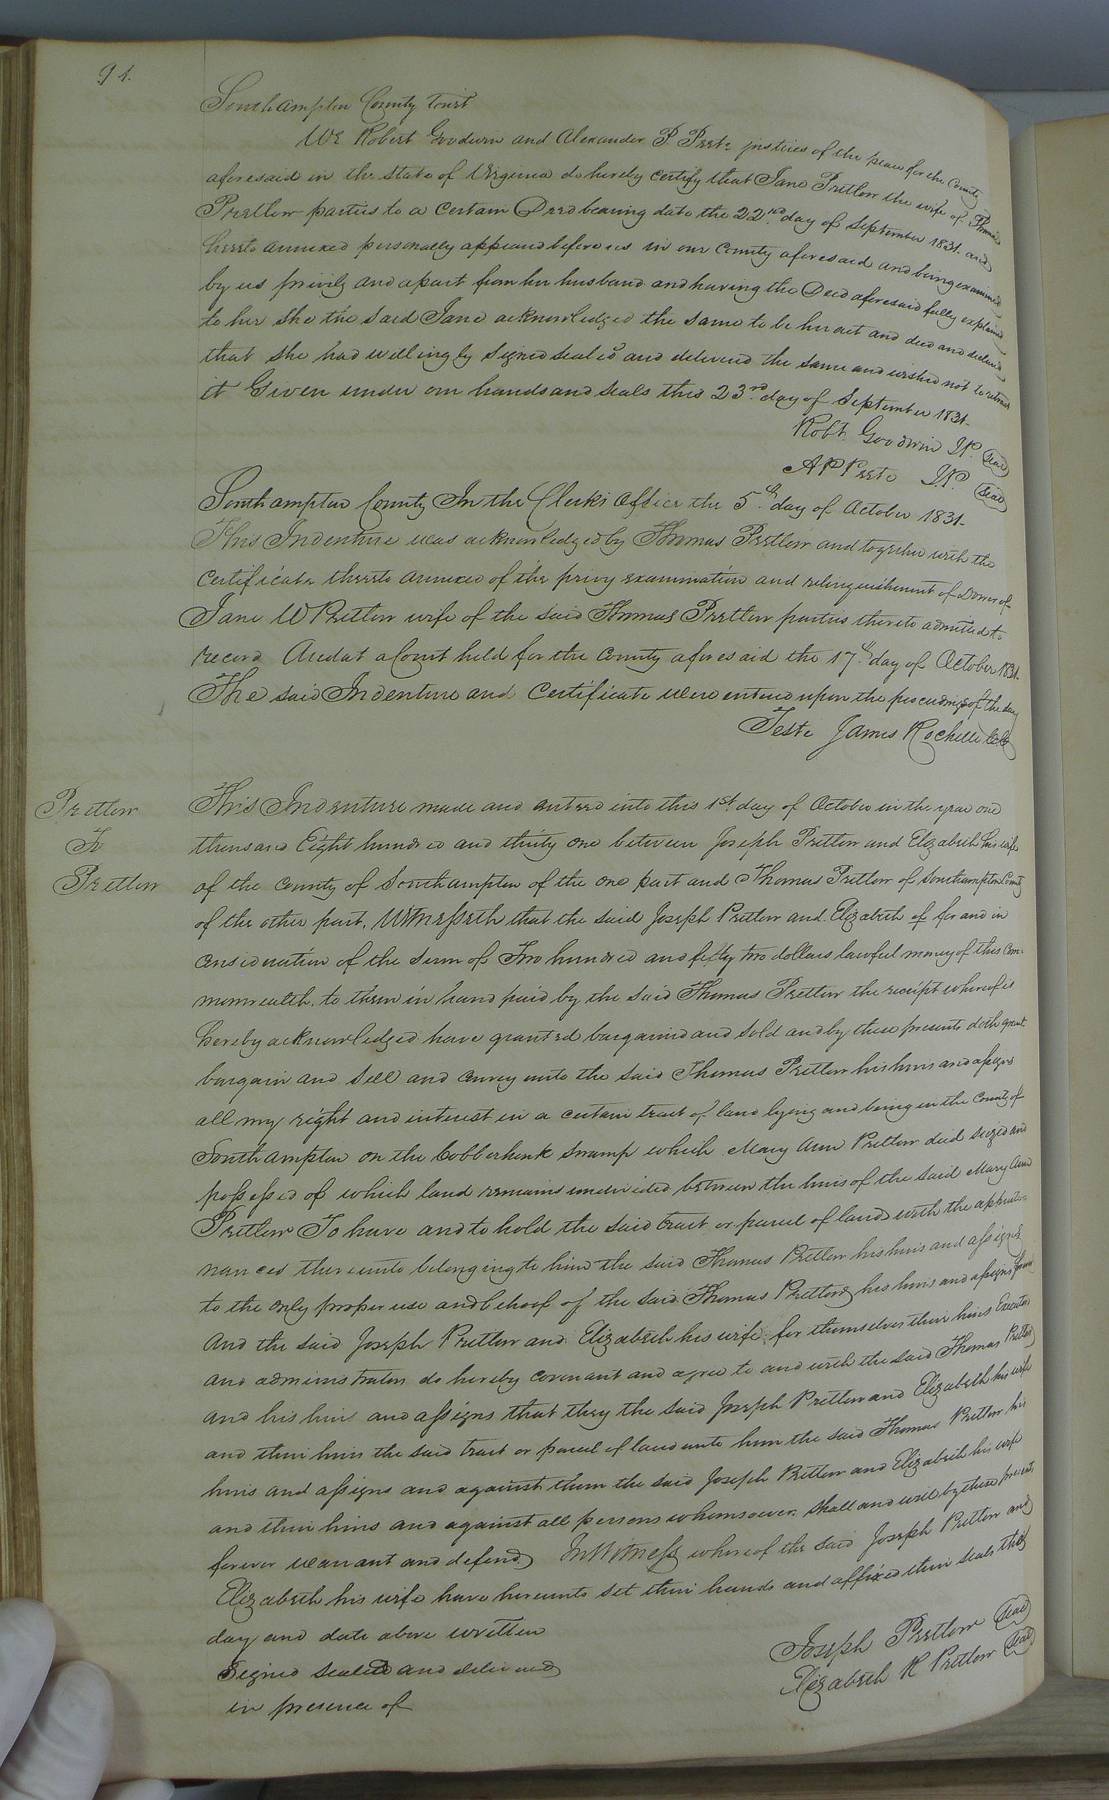 91.
Southampton County Towit
We Robert Goodwin and Alexander P Peete justices of the peace for the County
aforesaid in the state of Virginia do hereby certify that Jane Pretlow the wife of Thomas
Pretlow parties to a certain Deed bearing date the 22nd day of September 1831. and
hereto annexed personally appeared before us in our County aforesaid and being examined
by us privily and apart from her husband and having the Deed aforesaid fully explained
to her she the said Jane acknowledged the same to be her act and deed and declared
that she had willingly signed sealed and delivered the same and wished not to retract
it Given under our hands and seals this 23rd day of September 1831.
Robt. Goodwin JP. Seal
A P Peete JP. Seal
Southampton County In the Clerks Office the 5th day of October 1831.
This Indenture was acknowledged by Thomas Pretlow and together with the
certificate thereto annexed of the privy examination and relinquishment of Dower of
Jane W Pretlow wife of the said Thomas Pretlow parties thereto admitted to
record And at a Court held for the County aforesaid the 17th day of October 1831.
The said Indenture and Certificate were entered upon the proceedings of the day
Teste James Rochelle
Pretlow
To
Pretlow
This Indenture made and entered into this 1st day of October in the year one
thousand Eight hundred and thirty one between Joseph Pretlow and Elizabeth his wife
of the County of Southampton of the one part and Thomas Pretlow of Southampton County
of the other part. Witnesseth that the said Joseph Pretlow and Elizabeth of for and in
consideration of the sum of Two hundred and fifty two dollars lawful money of this Com
monwealth. to them in hand paid by the said Thomas Pretlow the receipt whereof is
hereby acknowledged have granted bargained and sold and by these presents doth grant
bargain and sell and convey unto the said Thomas Pretlow his heirs and assigns
all my right and interest in a certain tract of land lying and being in the County of
Southampton on the Cobberhunk swamp which Mary Ann Pretlow died seized and
possessed of which land remains undivided between the heirs of the said Mary Ann
Pretlow To have and to hold the said tract or parcel of land with the appurte
nances thereunto belonging to him the said Thomas Pretlow his heirs and assigns
to the only proper use and behoof of the said Thomas Pretlow his heirs and assigns forever
And the said Joseph Pretlow and Elizabeth his wife for themselves their heirs Executors
and administrators do hereby covenant and agree to and with the said Thomas Pretlow
and his heirs and assigns that they the said Joseph Pretlow and Elizabeth his wife
and their heirs the said tract or parcel of land unto him the said Thomas Pretlow his
heirs and assigns and against them the said Joseph Pretlow and Elizabeth his wife
and their heirs and against all persons whomsoever. shall and will by these presents
forever warrant and defend In Witness whereof the said Joseph Pretlow and
Elizabeth his wife have hereunto set their hands and affixed their seals the
day and date above written
Signed sealed and delivered
in presence of
Joseph Pretlow Seal
Elizabeth R Pretlow Seal